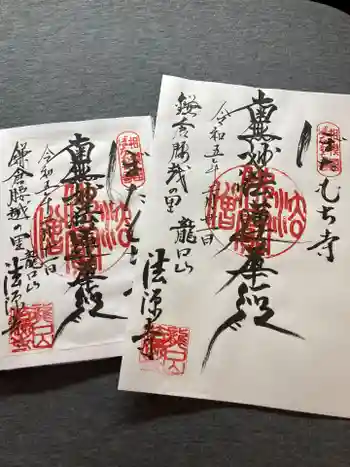 ぼたもち寺
南無妙法蓮華経
令和五年
鎌倉腰越の里 龍口山
法源寺
ぼたもち
南無妙法蓮華経
令和五年
鎌倉腰越の里 龍口山
法源寺